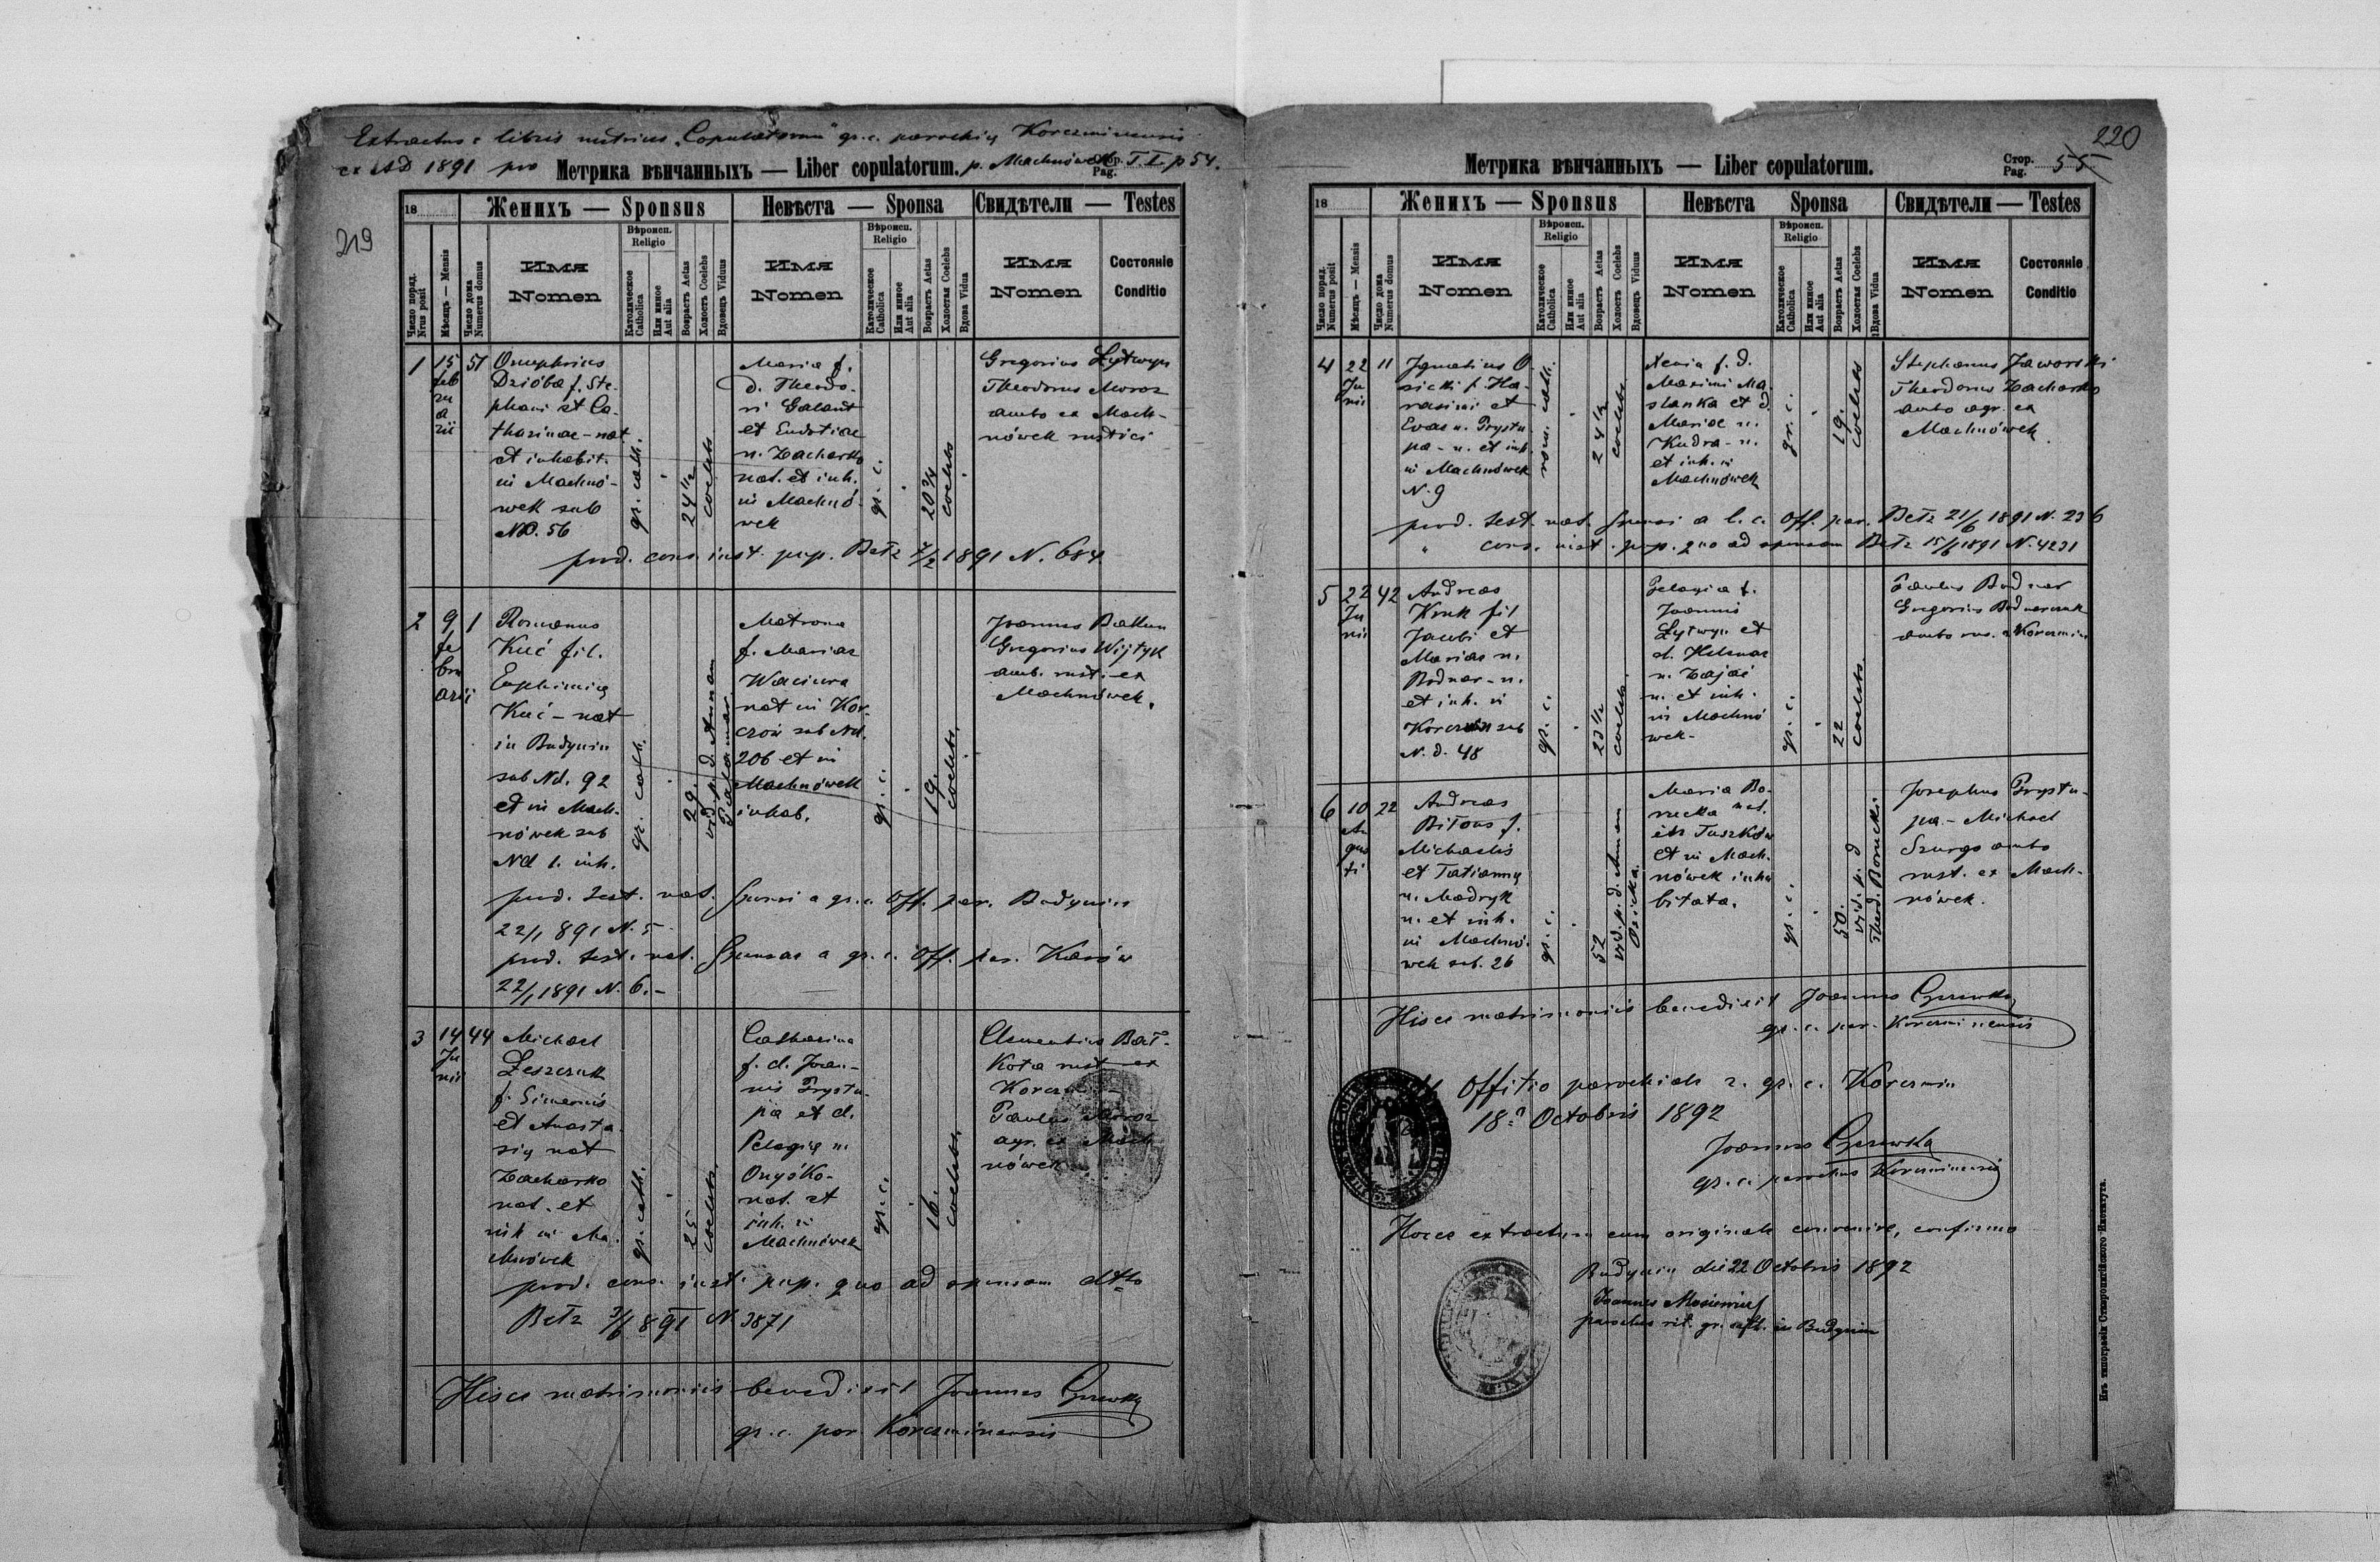 Extractus e libris metrices "Copulatorum" gr. c. parochię Korczminensis
ex AD 1891 pro
Метрика вѣнчанныхъ — Liber copulatorum.
p. Machnówek
Стор. Pag. T. I. p 54.
219
18
Женихъ — Sponsus
Невѣста — Sponsa
Свидѣтели — Testes
Число поряд. Nrus posit
Мѣсяцъ — Mensis
Число дома Numerus domus
Имя Nomen
Вѣроисп. Religio
Католическое Catholica
Или инное Aut alia
Возрастъ Aetas
Холостъ Coelebs
Вдовецъ Viduus
Имя Nomen
Вѣроисп. Religio
Католическое Catholica
Или инное Aut alia
Возрастъ Aetas
Холостая Coelebs
Вдова Vidua
Имя Nomen
Состояніе Conditio
1
15
feb
ru
a
rii
51
Onuphrius
Dzióba f. Ste-
phani et Ca-
tharinae - nat
et inhabit.
in Machnó-
wek sub
ND. 56
gr. cath.
24 1/2
coelebs
Maria f.
d. Theodo-
ri Galant
et Eudotiae
n. Zacharko
nat. et inh.
in Machnó-
wek
gr. c.
20 3/4
coelebs
Gregorius Lytwyn
Theodorus Moroz
ambo ex Mach-
nówek rustici
prod. cons. inst. pup. Bełz 4/2 1891 N. 684
2
9
fe
bru
arii
1
Romanus
Kuć fil.
Euphimię
Kuć - nat
in Budynin
sub Nd. 92
et in Mach-
nówek sub
Nd 1. inh.
gr. cath.
29.
vid. p. d. Annam
Matrona
f. Mariae
Waciura
nat in Kor-
sub Nd.
206 et in
Machnówek
inhab.
gr. c.
19.
coelebs.
Joannes Bałkun
Gregorius Wijtyk
amb. rust. ex
Machnówek.
prod. test. nat. Sponsi a gr. c. Off. par. Budynin
22/1 891 N. 5
prod. test. nat. Sponsae a gr. c. Off. par. Karów
22/1 1891 N. 6. -
3
14
Ju
nii
44
Michael
Leszczuk
f. Simeonis
et Anasta-
się nat
Zacharko
nat. et
inh in Ma-
chnówek
gr. cath.
25
coelebs.
Catharina
f. d. Joan-
nis Prystu-
pa et d.
Pelagię n.
Onyśko-
nat. et
inh. in
Machnówek
gr. c.
16.
coelebs.
Clementius Bał-
kota rust ex
Korczm
Paulus Moroz
agr. ex Mach
nówek
prod. cons. inst. pup. quo ad sponsam dtto
Bełz 3/6 891 N 3871
Hisce matrimoniis benedixit Joannes
gr. c. par. Korczminensis
220
Метрика вѣнчанныхъ — Liber copulatorum.
Стор. Pag. 55
18
Женихъ — Sponsus
Невѣста Sponsa
Свидѣтели — Testes
Число поряд. Numerus posit
Мѣсяцъ — Mensis
Число дома Numerus domus
Имя Nomen
Вѣроисп. Religio
Католическое Catholica
Или инное Aut alia
Возрастъ Aetas
Холостъ Coelebs
Вдовецъ Viduus
Имя Nomen
Вѣроисп. Religio
Католическое Catholica
Или инное Aut alia
Возрастъ Aetas
Холостая Coelebs
Вдова Vidua
Имя Nomen
Состояніе Conditio
4
22
Ju
nii
11
Ignatius O-
sicki f. Ha-
rasimi et
Evae n. Prystu
pa - n. et inh.
in Machnówek
N. 9
rom. cath.
24 1/2
coelebs.
Xenia f. d.
Maximi Ma-
slanka et d.
Mariae n.
Kudra - n.
et inh. in
Machnówek
gr. c.
19.
coelebs
Stephanus Jaworski
Theodorus Zacharko
ambo agr. ex
Machnówek.
prod. test. nat. Sponsi a l. c. Off. par. Bełz 21/6 1891 N. 236
" cons. inst. pup. quo ad sponsam Bełz 15/6 1891 N. 4231
5
22
Ju
nii
42
Andreas
Kruk fil
Jacobi et
Mariae n.
Bodnar - n.
et inh. in
Korczmin sub
N. d. 48
gr. c.
23 1/2
coelebs.
Pelagia f.
Joannis
Lytwyn et
d. Helenae
n. Zajać
n. et inh.
in Machnó
wek -
gr. c.
22
coelebs.
Paulus Bodnar
Gregorius Bodnarczuk
ambo rus. ex Korczmin
6
10
Au
gus
ti
22
Andreas
Biłous f.
Michaelis
et Tatiannę
n. Madryk
n. et inh.
in Machnó-
wek sub. 26
gr. c.
52
vid. p. d. Annam
Osicka.
Maria Bo-
rucka nat.
in Tuszków
et in Mach-
nówek inha
bitata.
gr. c.
50.
vid. p. d
Theod. Borucki.
Josephus Prystu-
pa - Michael
Szurgo ambo
rust. ex Mach-
nówek.
Hisce matrimoniis benedixit Joannes
gr. c. par. Korczminensis
Offitio parochiali r. gr. c. Korczmin
18. Octobris 1892
Joannes
gr. c. parochus Korczminensis
Hocce extractum cum originale convenire, confirmo
Budynin die 22 Octobris 1892
Joannes
parochus rit. gr. cath. in Budynin
Изъ типографіи Ставропигійского Института.